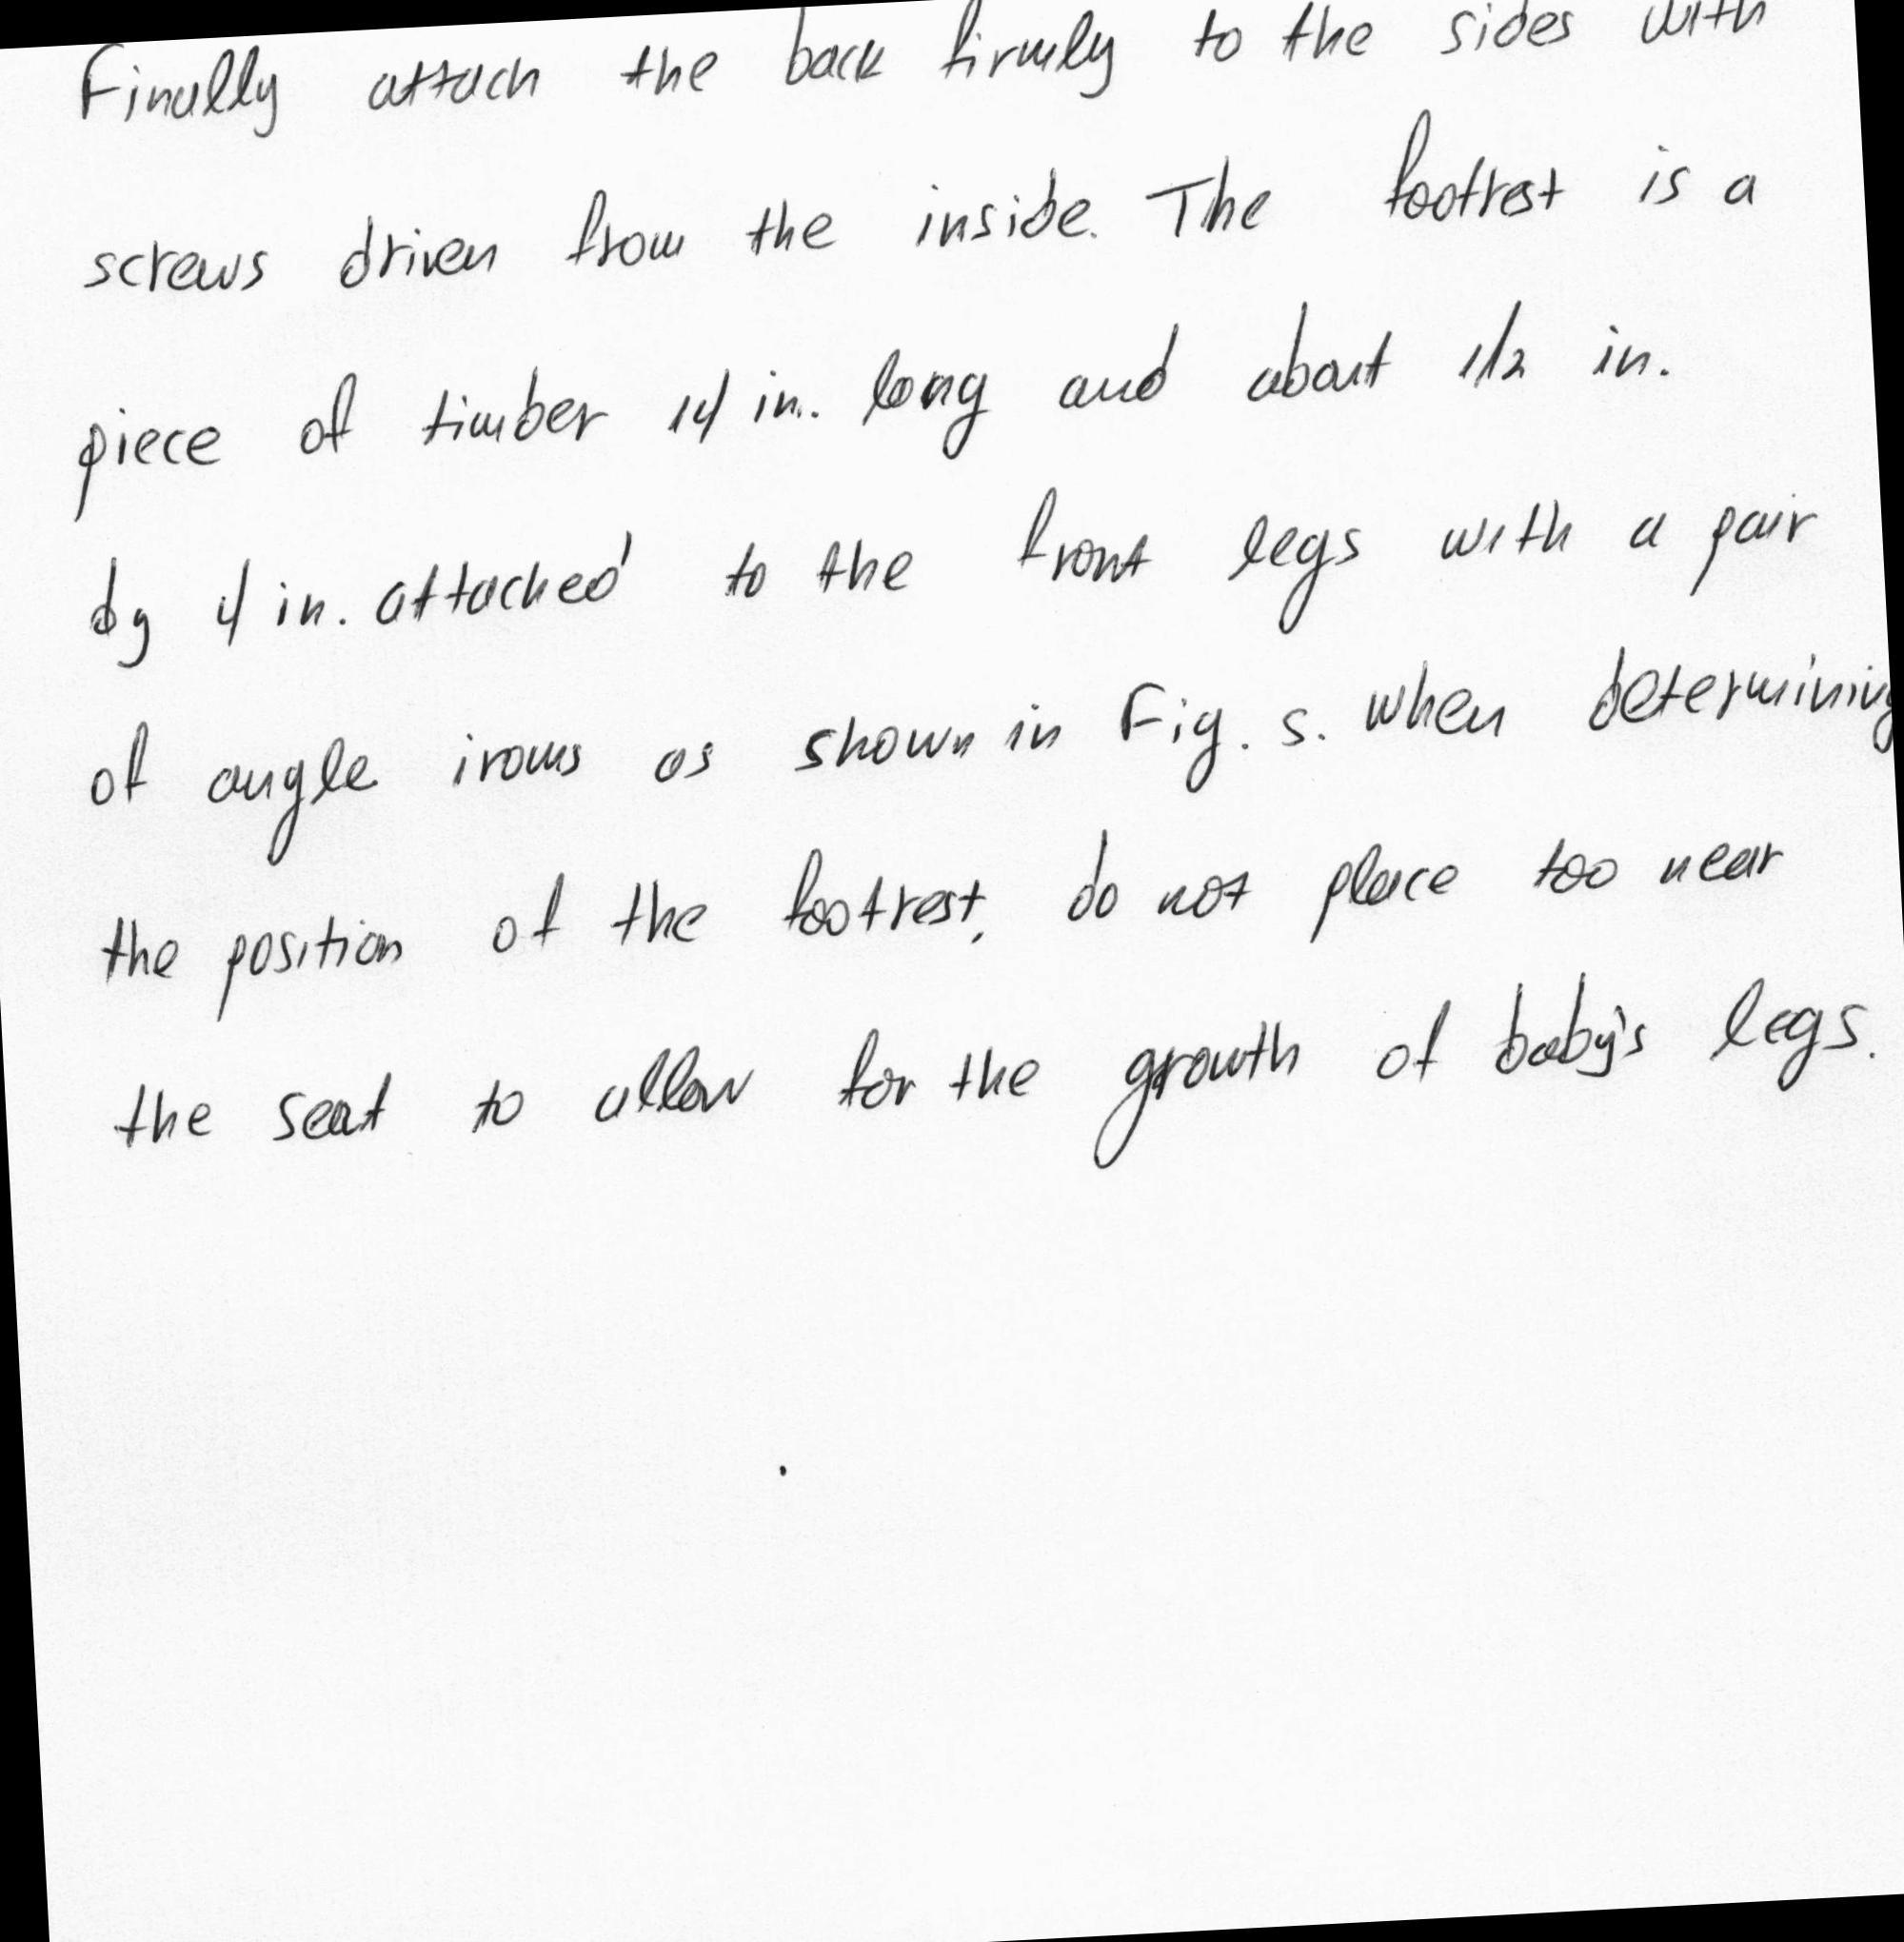 Finally attach the back firmly to the sides with
screws driven from the inside. The footrest is a
piece of timber 14 in. long and about 1/2 in.
by 4 in. attached to the front legs with a pair
of angle irons as shown in Fig. 5. When determining
the position of the footrest, do not place too near
the seat to allow for the growth of baby's legs.